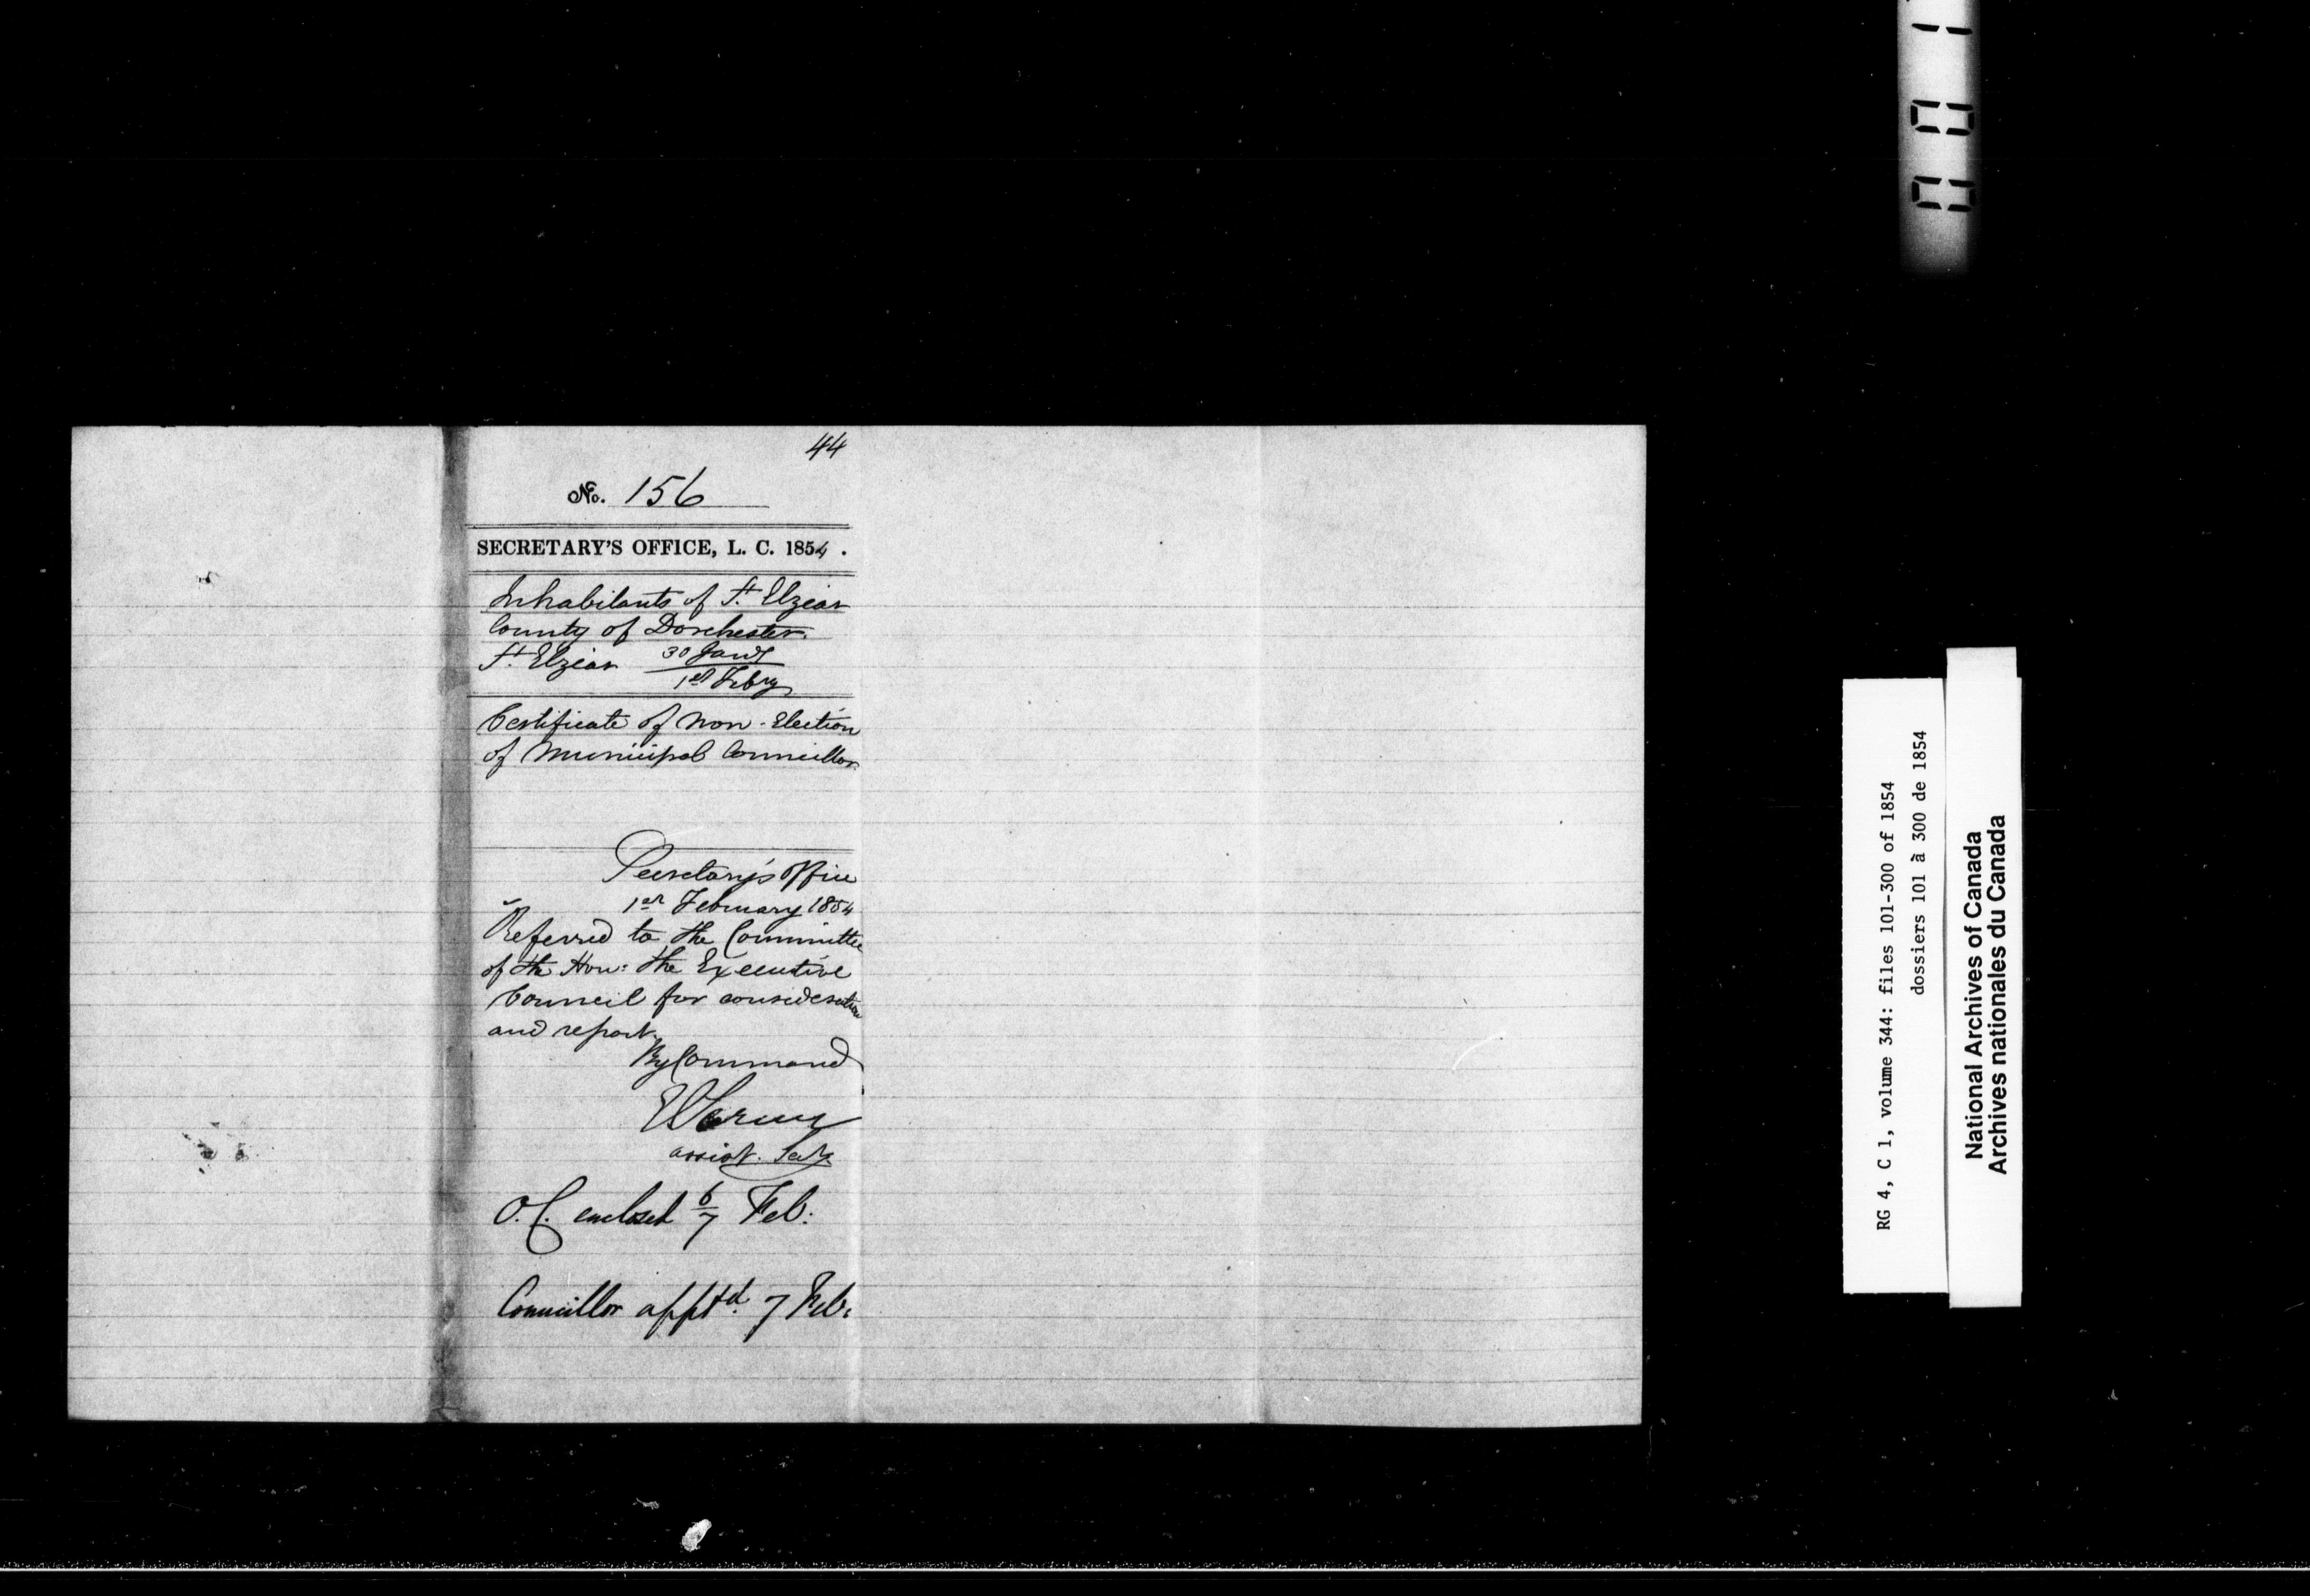 44
No. 156
SECRETARY'S OFFICE, L. C. 1854.
Inhabitants of St. Elzear
County of Dorchester.
St. Elzear 30 Jany
1st Feby
Certificate of non-Election
of Municipal Councillor
Secretary's Office
1st February 1854
Referred to the Committee
of the Hon: the Executive
Council for consideration
and report.
By Command
assist. Secy
O.C. enclosed 6/7 Feb:
Councillor apptd. 7 Feb:
RG 4, C 1, volume 344: files 101-300 of 1854
dossiers 101 à 300 de 1854
National Archives of Canada
Archives nationales du Canada
001